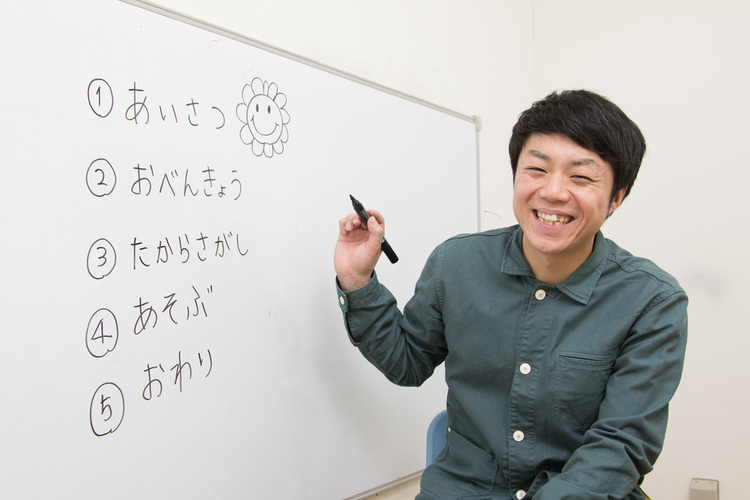 ① あいさつ
② おべんきょう
③ たからさがし
④ あそぶ
⑤ おわり